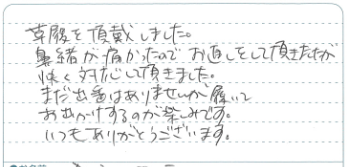 草履を頂戴しました。
鼻緒が痛かったので お直しをして頂きたたが
快く対応して頂きました。
まだ出番はありませんが 履いて
お出かけするのが楽しみです。
いつもありがとうございます。